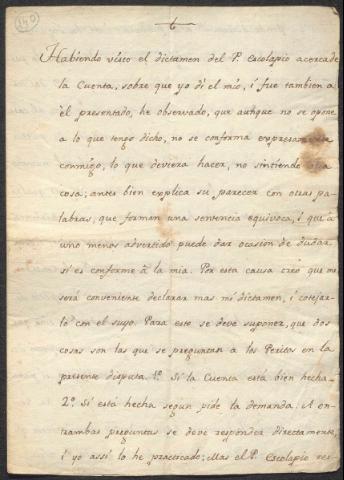 140
Habiendo visto el dictamen del P. Escolapio acerca de
la Cuenta, sobre que yo dí el mio, i fue tambien a
èl presentado, he observado, que aunque no se opone
a lo que tengo dicho, no se conforma expresamente
conmigo, lo que deviera hacer, no sintiendo otra
cosa; antes bien explica su parecer con otras pa-
labras, que forman una sentencia equivoca, i que à
uno menos advertido puede dar ocasion de dudar,
si es conforme à la mia. Por esta causa creo que me
serà conveniente declarar mas mi dictamen, i cotejar-
lo con el suyo. Para esto se deve suponer, que dos
cosas son las que se preguntan a los Peritos en la
presente disputa. 1º. Si la Cuenta està bien hecha.
2º. Si està hecha segun pide la demanda. A en-
trambas preguntas se deve responder directamente,
i yo assi lo he practicado; Mas el P. Escolapio res-